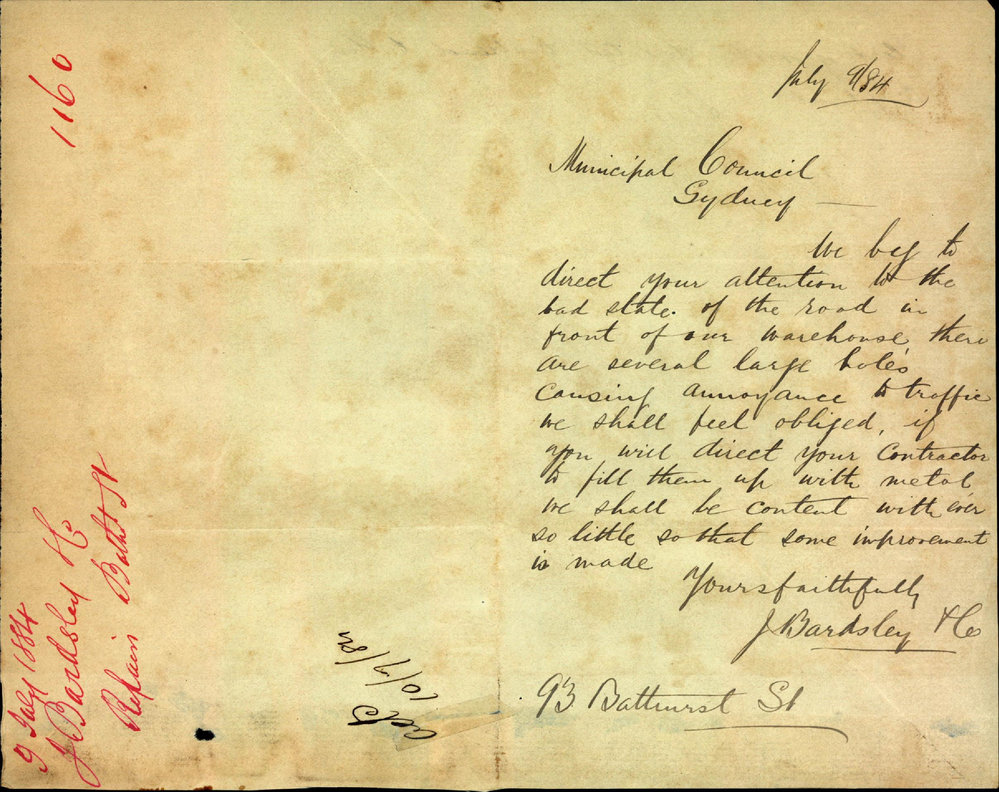 July 9/84
Municipal Council
Sydney —
We beg to
direct your attention to the
bad state. of the road in
front of our warehouse, there
are several large holes
causing annoyance to traffic
we shall feel obliged, if
you will direct your Contractor
to fill them up with metal
we shall be content with ever
so little so that some improvement
is made
Yours faithfully
J Bardsley & Co
93 Bathurst St
10/7/84
1160
9 July 1884
J Bardsley & Co
Repair Bathst St